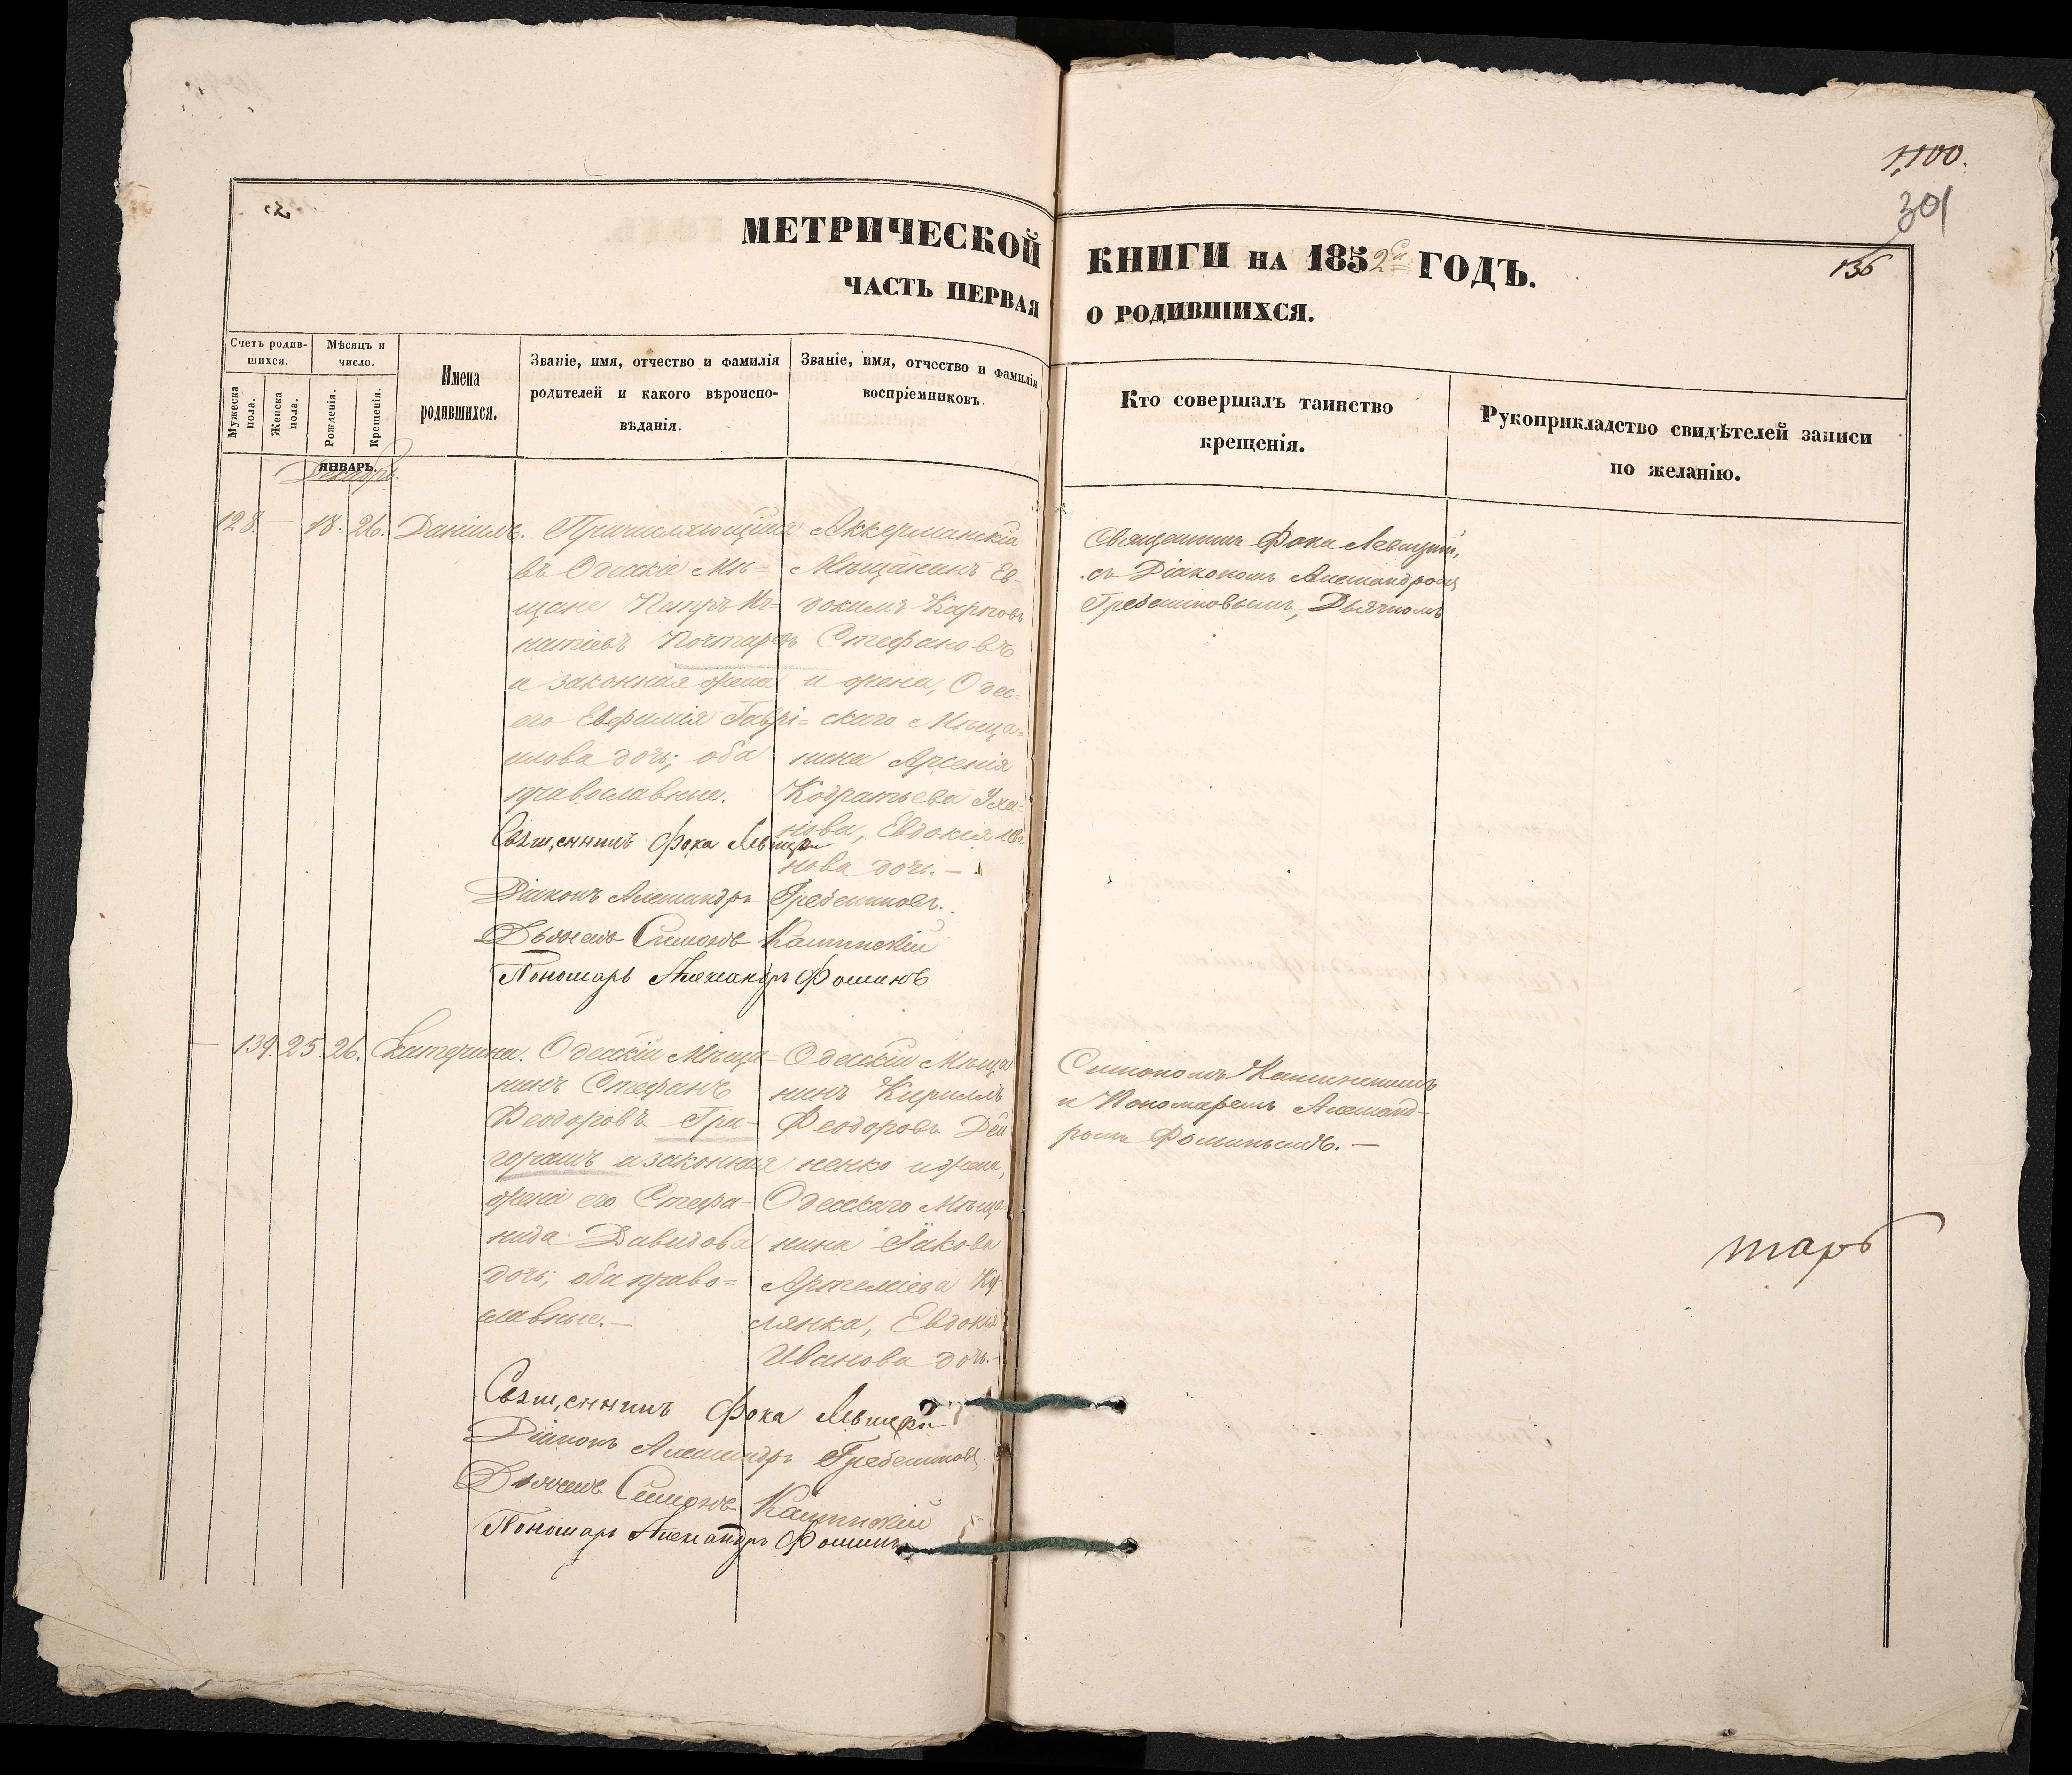 1,100.
301
136
МЕТРИЧЕСКОЙ КНИГИ НА 1852й ГОДЪ.
ЧАСТЬ ПЕРВАЯ О РОДИВШИХСЯ.
Счетъ родив-
шихся.
Мужеска пола.
Женска пола.
Мѣсяцъ и
число.
Рожденія.
Крещенія.
Имена
родившихся.
Званіе, имя, отчество и фамилія
родителей и какого вѣроиспо-
вѣданія.
Званіе, имя, отчество и фамилія
воспріемниковъ.
Кто совершалъ таинство
крещенія.
Рукоприкладство свидѣтелей записи
по желанію.
ЯНВАРЬ.
Декабрь.
128. — 18. 26. Даніилъ.
Причисляющійся
въ Одесскіе Мѣ-
щане Петръ Иг-
натіевъ Почтаревъ
и законная жена
его Евфимія Гаврі-
илова дочь; оба
православные.
Аккерманскій
Мѣщанинъ Ев-
докимъ Карповъ
Стефановъ
и жена, Одес-
скаго Мѣща-
нина Арсенія
Кодратьева
Евдокія Ива
нова дочь. —
Священникъ Фока Левицкій,
съ Діакономъ Александромъ
Гребенниковымъ, Дьячкомъ
Священникъ Фока Левицкій
Діаконъ Александръ Гребенниковъ.
Дьячекъ Симонъ Каминскій
Пономарь Александръ Фоминъ
— 139. 25. 26. Екатерина.
Одесскій Мѣща-
нинъ Стефанъ
Феодоровъ Гри-
горашъ и законная
жена его Стефа-
нида Давидова
дочь; оба право-
славные. —
Одесскій Мѣща
нинъ Кириллъ
Феодоровъ Дей
ненко и жена,
Одесскаго Мѣща-
нина Іакова
Артеміева
Евдокія
Иванова дочь. —
Симономъ Каминскимъ
и Пономаремъ Александ-
ромъ Фоминымъ. —
тарь
Священникъ Фока Левицкій
Діаконъ Александръ Гребенниковъ
Дьячекъ Симонъ Каминскій
Пономарь Александръ Фоминъ